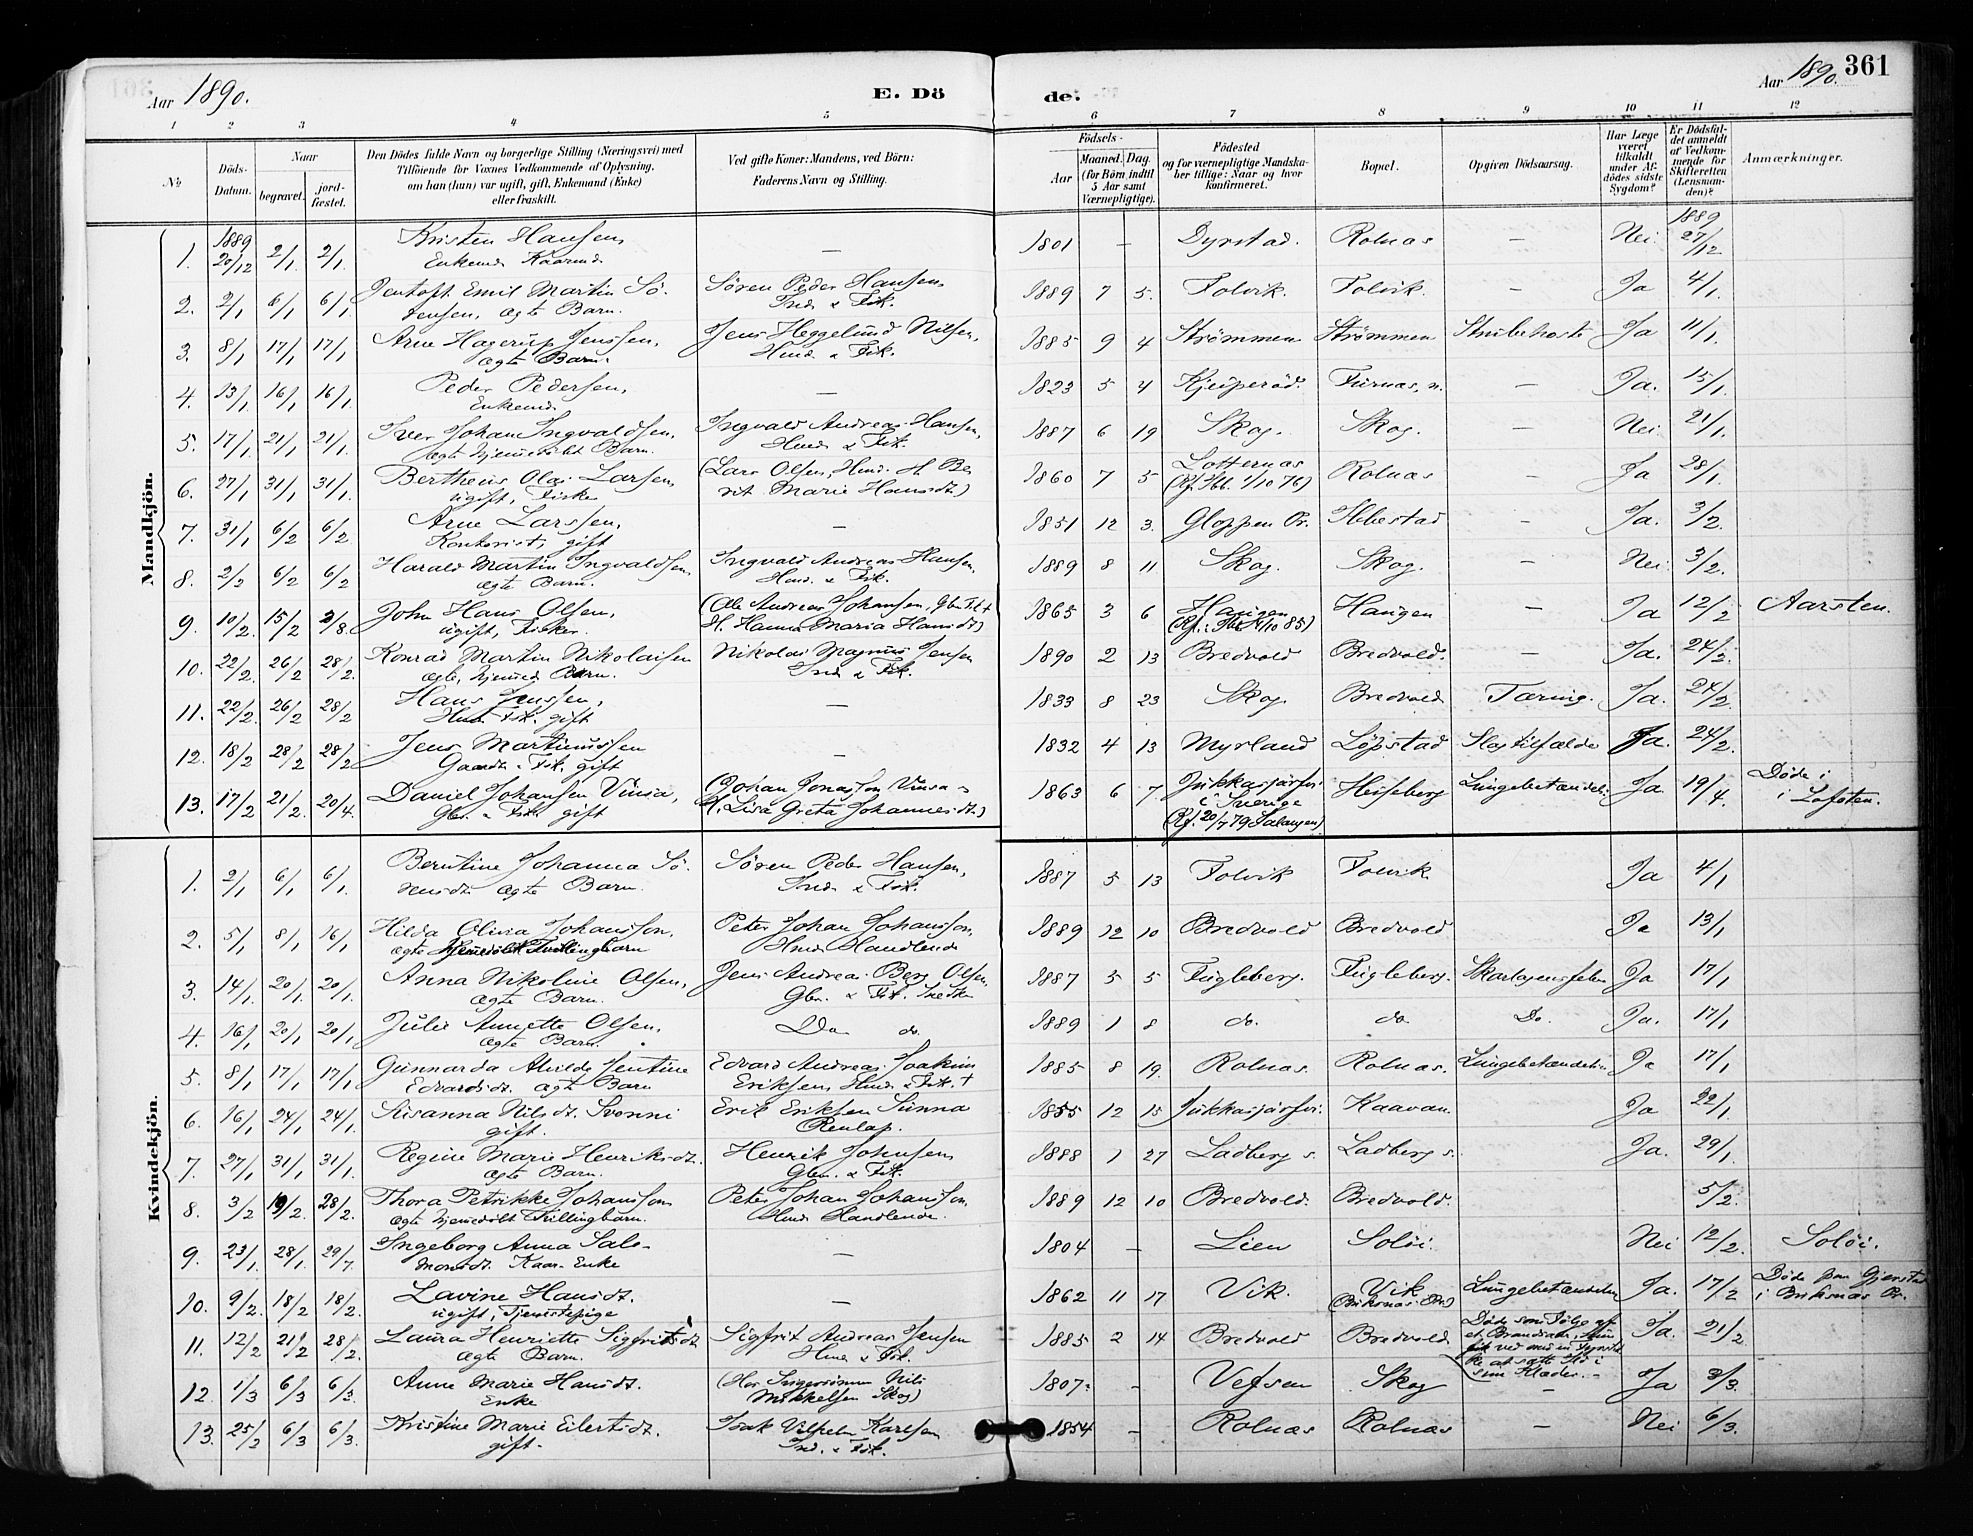 Aar 1890. E. Dö de. Aar 1890. 361
1 2 3 4 5 6 7 8 9 10 11 12
No. Döds-Datum. Naar begravet. jord-fæstet. Den Dödes fulde Navn og borgerlige Stilling (Næringsvei) med Tilföiende for Voxnes Vedkommende af Oplysning, om han (hun) var ugift, gift, Enkemand (Enke) eller fraskilt. Ved gifte Koner: Mandens, ved Börn: Faderens Navn og Stilling. Födsels- Aar Maaned. Dag. (for Börn indtil 5 Aar samt Værnepligtige). Födested og for værnepligtige Mandskaber tillige: Naar og hvor konfirmeret. Bopel. Opgiven Dödsaarsag. Har Læge været tilkaldt under Afdödes sidste Sygdom? Er Dödsfaldet anmeldt af Vedkommende for Skifteretten (Lensmanden)? Anmærkninger.
Mandkjön.
1. 1889 20/12 2/1. 2/1. Kristen Hansen, Enkemd. Kaarmd. — 1801 — Dyrstad. Rolnas — Nei. 1889 27/12
2. 2/1 6/1 6/1. Jentoft Emil Martin Sörensen, ægte Barn. Sören Peder Hansen, Ind. & Fisk. 1889 7 5. Folvik. Folvik. — Ja 4/1.
3. 8/1 17/1 17/1. Arne Hagerup Jenssen, ægte Barn. Jens Heggelund Nilsen, Hmd. & Fisk. 1885 9 4 Strömmen Strömmen Strubehoste Ja 11/1.
4. 13/1. 16/1 16/1. Peder Pedersen, Enkemd. — 1823 5 4 Kjeiperöd. Furnas, n. — Ja. 15/1.
5. 17/1. 21/1 21/1. Iver Johan Ingvaldsen, ægte hjemedöbt Barn. Ingvald Andreas Hansen, Hmd. & Fisk. 1887 6 19 Skog. Skog. — Nei. 21/1.
6. 27/1 31/1 31/1. Bertheus Olai Larsen, ugift, Fisker (Lars Olsen, Hmd. H. Berit Marie Hansdt.) 1860 7 5 Lotternas (Kf. Ibb. 1/10 76) Rolnas — Ja 28/1.
7. 31/1 6/2 6/2. Arne Larssen, Kontorist, gift — 1851 12 3. Gloppen Pr. Ibbestad — Ja. 3/2.
8. 2/2 6/2 6/2 Harald Martin Ingvaldsen, ægte Barn. Ingvald Andreas Hansen, Hmd. & Fisk. 1889 8 11 Skog. Skog. — Nei. 3/2.
9. 10/2. 15/2 3/8. John Hans Olsen, ugift, Fisker. (Ole Andreas Johansen, Gbr. Fisk. + H. Hanna Maria Hansdt.) 1865 3 6 Haugen Haugen — Ja 12/2 Aarsten.
10. 22/2. 26/2 28/2. Konrad Martin Nikolaisen ægte, hjemed. Barn. Nikolai Magnus Jensen Ind. & Fisk. 1890 2 13 Bredvold Bredvold. — Ja. 24/2.
11. 22/2. 26/2 28/2 Hans Jenssen, Hmd. Fisk. gift — 1833 8 23 Skog. Bredvold Tæring. Ja. 24/2.
12. 18/2 28/2 28/2 Jens Martinussen Gaardbr. Fisk. gift — 1832 4 13 Myrland Löpstad Slagtilfælde Ja. 24/2.
13. 17/2 21/2. 20/4. Daniel Johansen Vinsa, Gbr. & Fisk. gift (Johan Jonasson Vinsa & H. Lisa Greta Johannesdt.) 1863 6 7. Jukkasjärfvi i Sverige (Kf. 20/7 79 Salangen) Heiseberg Lungebetændels. Ja. 19/4. Döde i Lofoten.
Kvindekjön.
1. 2/1 6/1 6/1. Berntine Johanna Sörensdt. ægte Barn. Sören Peder Hansen, Ind. & Fisk. 1887 5 13 Folvik Folvik. Ja 4/1
2. 5/1 8/1 16/1 Hilda Olivia Johansson, ægte hjemedöbt Tvillingbarn Peter Johan Johansson, Hmd. Handlende 1889 12 10 Bredvold Bredvold Ja 13/1
3. 14/1. 20/1 20/1. Anna Nikoline Olsen, ægte Barn. Jens Andreas Berg Olsen, Gbr. & Fisk. Snedker 1887 5 5 Fugleberg. Fugleberg. Skarlagensfeber Ja 17/1
4. 16/1 20/1 20/1 Julie Annette Olsen, ægte Barn. Do do. 1889 1 8 do. do. Do. Ja. 17/1
5. 8/1. 17/1 17/1 Gunnarda Alvilde Jentine Edvardsdt. ægte Barn Edvard Andreas Joakim Eriksen Hmd. & Fisk. + 1885 8 19. Rolnas. Rolnas. Lungebetændelse Ja 17/1
6. 16/1. 24/1 24/1. Susanna Nilsdt. Svonni gift. Erik Eriksen Sunna Renlap. 1855 12 15 Jukkasjärfvi. Kaavan. Ja 22/1
7. 27/1 31/1 31/1. Regine Marie Henriksdt. ægte Barn. Henrik Johnsen Gbr. & Fisk. 1888 1 27 Ladberg s. Ladberg s. Ja. 29/1.
8. 3/2 19/2. 28/2. Thora Petrikke Johansson ægte hjemedöbt Tvillingbarn. Peter Johan Johansson, Hmd. Handlende. 1889 12 10 Bredvold. Bredvold. 5/2.
9. 23/1. 28/1 29/7. Ingeborg Anna Salomonsdt. Kaar-Enke — 1804 — Lien Solöi. Nei 12/2. Solöi.
10. 9/2. 18/2 18/2. Lavine Hansdt. ugift, Tjenestepige — 1862 11 17 Vik. Vik (Buksnas Pr.) Lungebetændelse Ja. 17/2 Döde paa Gjerstad i Buksnas Pr.
11. 12/2 21/2 28/2. Laura Henriette Sigfritsdt. ægte Barn. Sigfrit Andreas Jensen Hmd. & Fisk. 1885 2 14 Bredvold Bredvold Döde som Fölge af et Brandsaar, hun fik ved med en Fyrstikke at sætte Ild i sine Klæder. Ja. 21/2
12. 1/3 6/3 6/3. Anne Marie Hansdt. Enke (Hos Svigersönnen Nils Mikkelsen Skog) 1807. — Vefsen Skog — Ja 3/3.
13. 25/2 6/3 6/3. Kristine Marie Eilertsdt. gift. Isak Vilhelm Karlsen Ind. & Fisk. 1854 — Rolnas Rolnas — Nei 6/3.